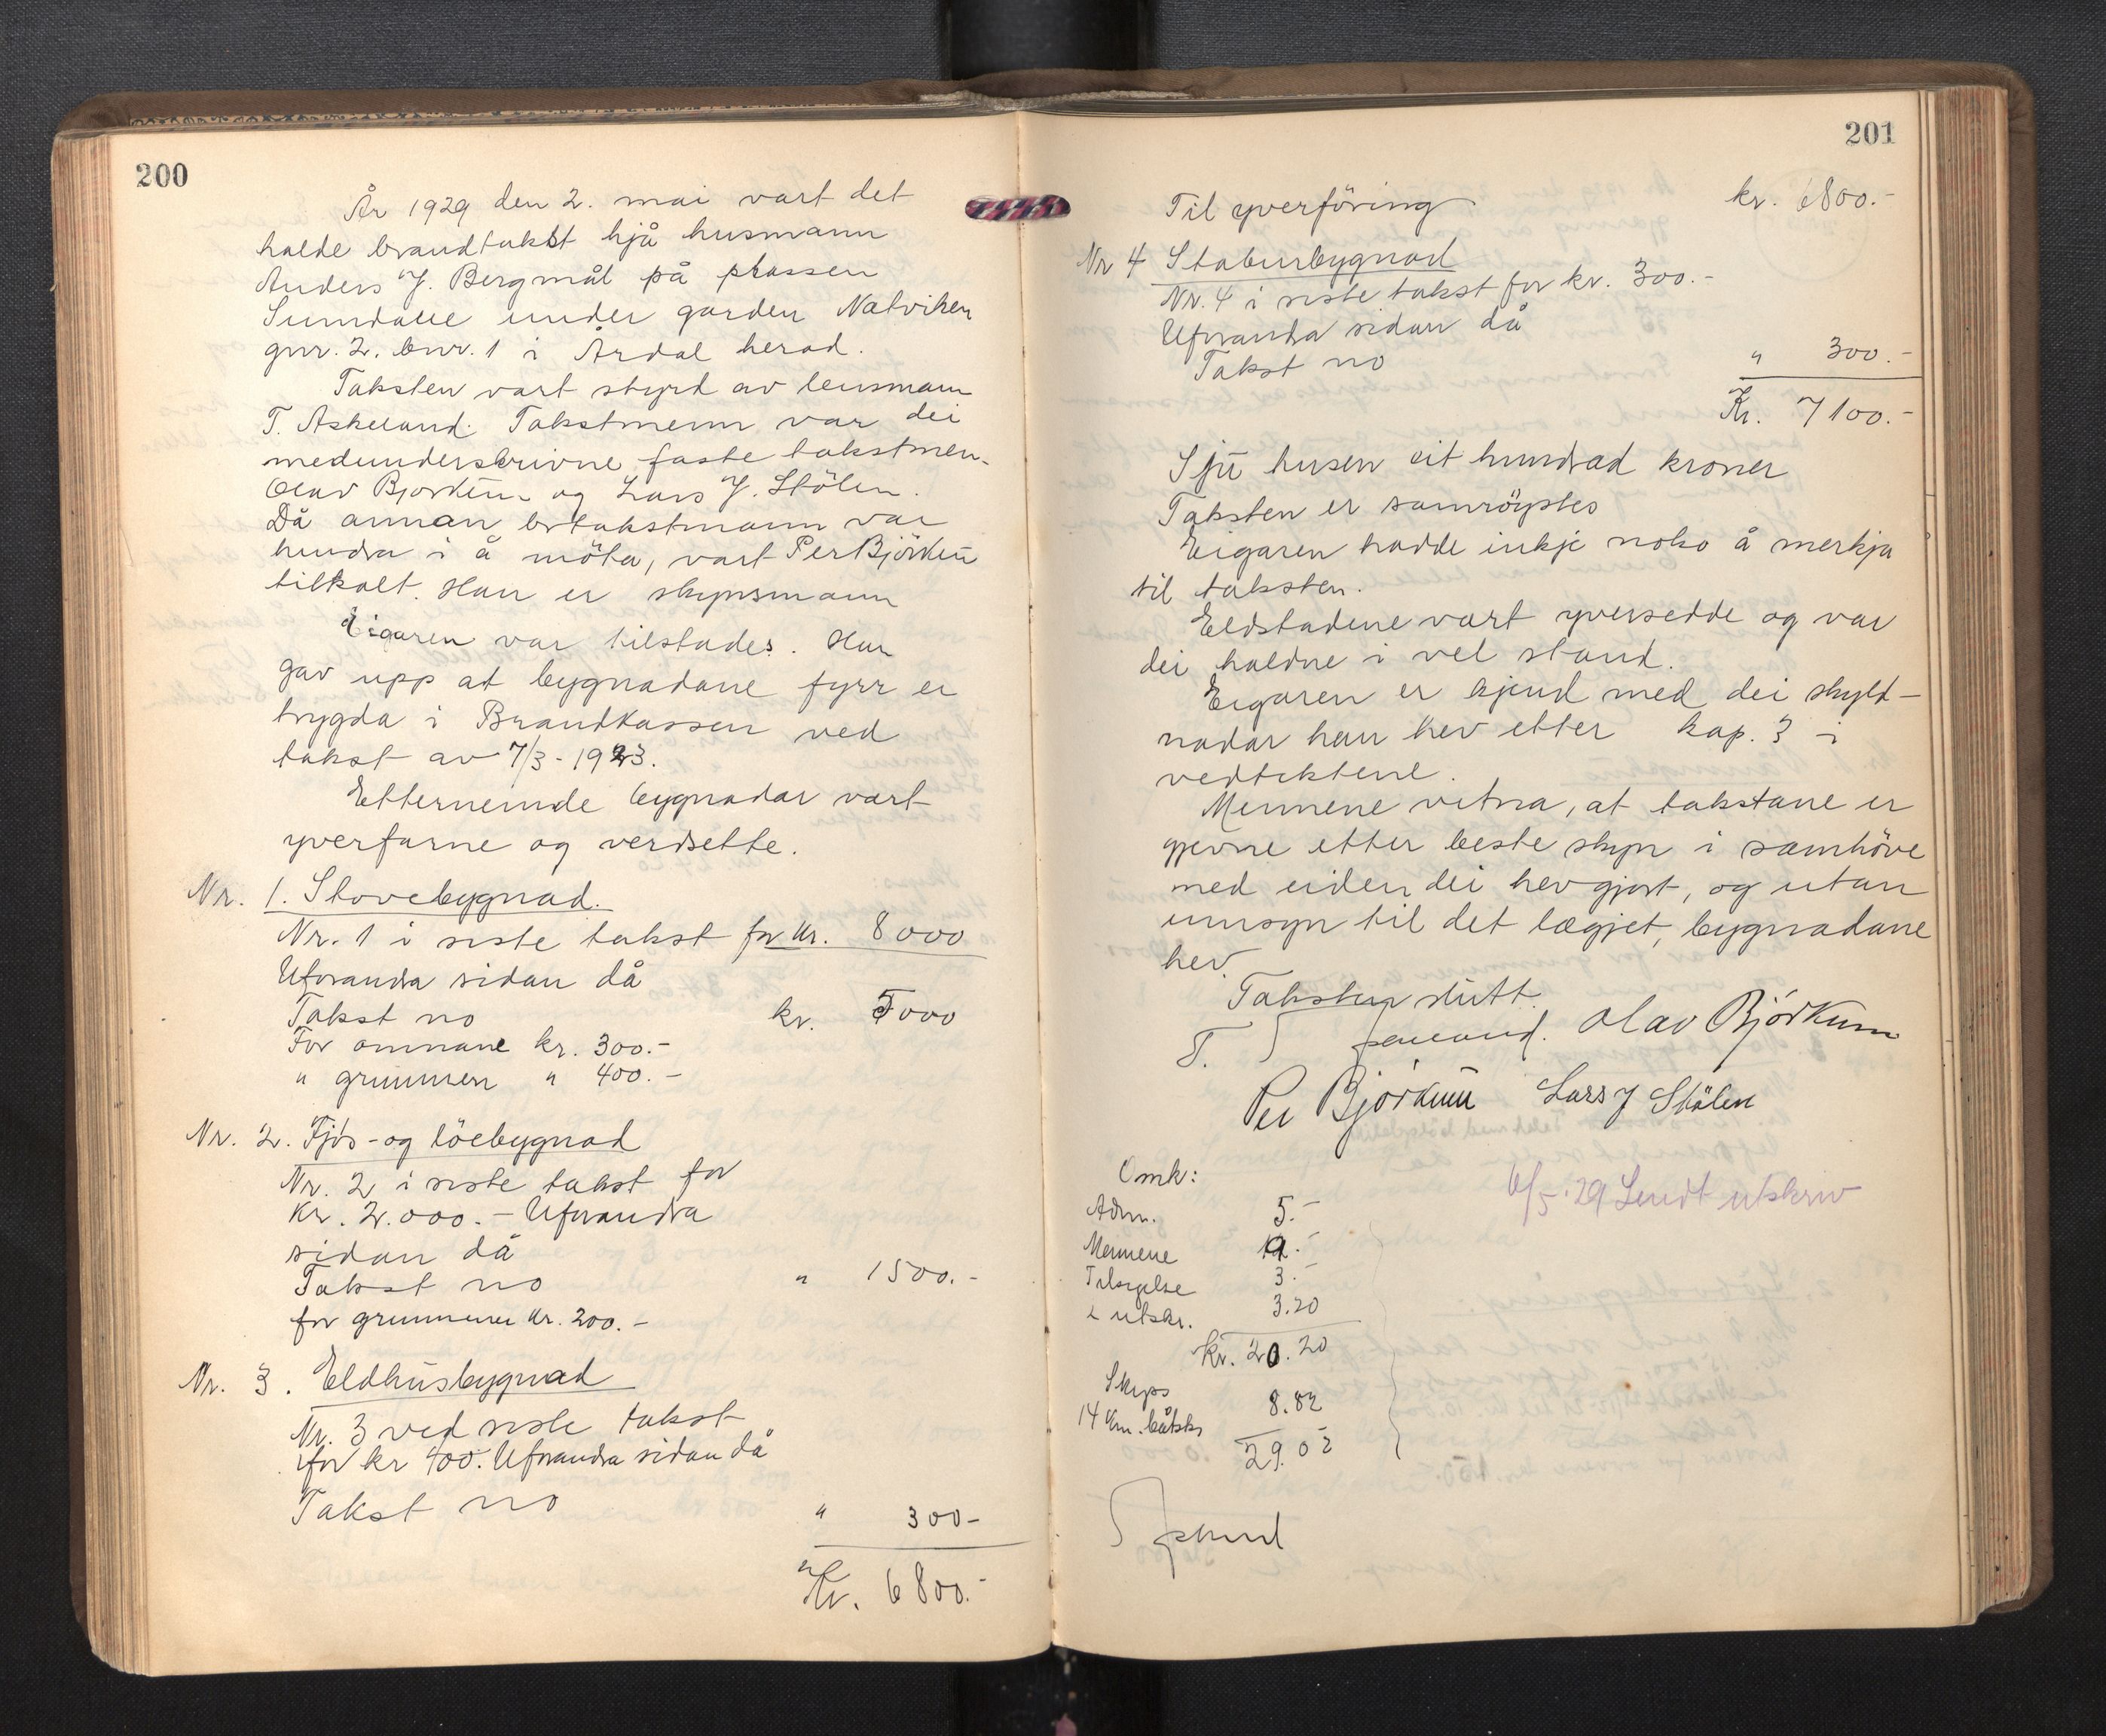 200
År 1929 den 2. mai vart det
halde brandtakst hjå husmann
Anders J. Bergmål på plassen
Sumdalle under garden Natviken
gnr. 2. bnr. 1 i Årdal herad.
Taksten vart styrd av lensmann
T. Askeland. Takstmenn var dei
medunderskrivne faste takstmen-
Olav Bjorkum og Lars J. Stölen.
Då annan br takstmann var
hindra i å möta, vart Per Björkum
tilkalt. Han er skynsmann
Eigaren var tilstades. Han
gav upp at bygnadane fyrr er
trygda i Brandkassen ved
takst av 7/3-1923.
Etternemnde bygnadar vart
yverfarne og verdsette.
Nr. 1. Stovebygnad.
Nr. 1 i siste takst for kr. 8000
Uforandra sidan då
Takst no kr. 5000
For omnane kr. 300.-
" grunnen " 400.-
Nr. 2. Fjös- og löebygnad
Nr. 2 i siste takst for
kr. 2.000.- Uforandra
sidan då
Takst no " 1500.-
for grunnen kr. 200.-
Nr. 3. Eldhúsbygnad
Nr. 3 ved siste takst
for kr 400. Uforandra sidan då
Takst no " 300-
Kr. 6800.-
201
Til yverföring kr. 6800.-
Nr 4 Staburbygnad
Nr. 4 i siste takst for kr. 300.-
Uforandra sidan då
Takst no " 300.-
Kr. 7100.-
Sju tusen eit hundrad kroner
Taksten er samröystes
Eigaren hadde inkje noko å merkja
til taksten.
Eldstadene vart yversedde og var
dei haldne i vel stand.
Eigaren er kjend med dei skyld-
nadar han hev etter kap. 3 i
vedtektene.
Mennene vitna, at takstane er
gjevne etter beste skyn i samhöve
med eiden dei hev gjort, og utan
umsyn til det lægjet, bygnadane
hev.
Taksten slutt.
T. Olav Björkum
Per Björkum Lars J Stölen
6/5-29 Sendt utskriv
Omk:
Adm. 5.-
Mennene 9.-
Tilsigelse 3.-
i utskr. 3.20
kr. 20.20
Skyss
14 km. båtsks 8.82
29.02